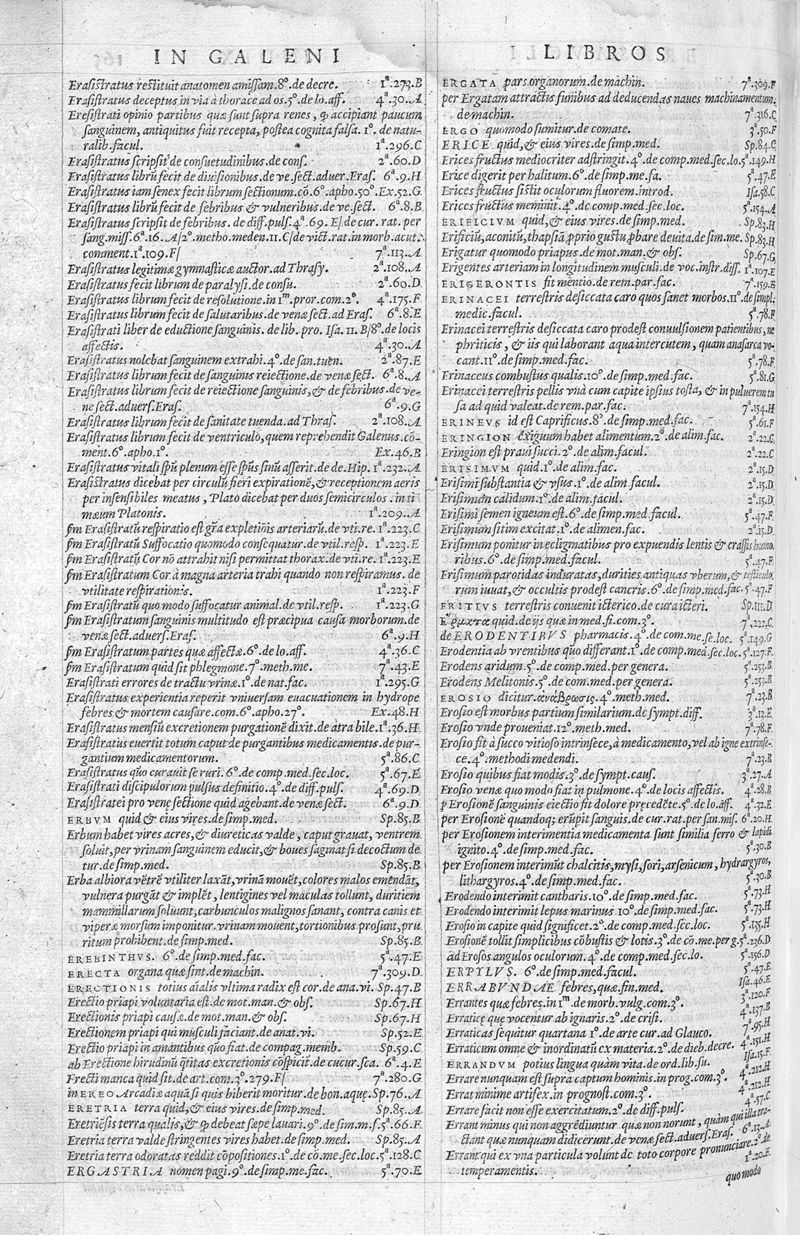 IN GALENI
Erasistratus restituit anatomen amissam.8º.de decre. 1ª.273.B
Erasistratus deceptus in via à thorace ad os.5º.de lo.aff. 4ª.30.A
Eresistrati opinio partibus quæ sunt supra renes, ꝙ accipiant paucum
sanguinem, antiquitus fuit recepta, postea cognita falsa. 1º. de natu-
ralib.facul. 1ª.296.C
Erasistratus scripsit de consuetudinibus.de cons. 2ª.60.D
Erasistratus librũ fecit de diuisionibus.de ve.sect.aduer.Eras. 6ª.9.H
Erasistratus iam senex fecit librum sectionum.cõ.6º.apho.50º.Ex.52.G
Erasistratus librũ fecit de febribus & vulneribus.de ve.sect. 6ª.8.B
Erasistratus scripsit de febribus.de diff.puls.4ª.69. E/ de cur. rat. per
sang.miss.6ª.16.A/2º.metho.meden.11.C/de vict.rat.in morb.acut.
comment.1ª.109.F/ 7ª.113.A
Erasistratus legitimæ gymnasticæ auctor.ad Thrasy. 2ª.108.A
Erasistratus fecit librum de paralysi.de consu. 2ª.60.D
Erasistratus librum fecit de resolutione.in 1m.pror.com.2º. 4ª.175.F
Erasistratus librum fecit de salutaribus.de venæ sect.ad Eras. 6ª.8.E
Erasistrati liber de eductione sanguinis.de lib.pro.Isa.11.B/8º de locis
affectis. 4ª.30.A
Erasistratus nolebat sanguinem extrahi.4º.de san.tuen. 2ª.87.E
Erasistratus librum fecit de sanguinis reiectione.de venæ sect. 6ª.8.A
Erasistratus librum fecit de reiectione sanguinis,& de febribus.de ve-
ne sect.aduers.Eras. 6ª.9.G
Erasistratus librum fecit de sanitate tuenda.ad Thras. 2ª.108.A
Erasistratus librum fecit de ventriculo,quem reprehendit Galenus.cõ-
ment.6º.apho.1º. Ex.46.B
Erasistratus vitali spũ plenum esse spũs sinũ asserit.de de.Hip. 1ª.232.A
Erasistratus dicebat per circulũ fieri expirationē,& receptionem aeris
per insensibiles meatus, Plato dicebat per duos semicirculos.in ti
mæum Platonis. 1ª.209.A
ƥm Erasistratũ respiratio est gr̃a expletiõis arteriarũ.de vti.re. 1ª.223.C
ƥm Erasistratũ Suffocatio quomodo consequatur.de vtil.resp. 1ª.223.E
ƥm Erasistratũ Cor nõ attrahit nisi permittat thorax.de vti.re. 1ª.223.E
ƥm Erasistratum Cor à magna arteria trahi quando non respiramus.de
vtilitate respirationis. 1ª.223.F
ƥm Erasistratũ quo modo suffocatur animal.de vtil.resp. 1ª.223.G
ƥm Erasistratum sanguinis multitudo est præcipua causa morborum.de
venæ sect.aduers.Eras. 6ª.9.H
ƥm Erasistratum partes quæ affectæ.6º.de lo.aff. 4ª.36.C
ƥm Erasistratum quid sit phlegmone.7º.meth.me. 7ª.43.E
Erasistrati errores de tractu vrinæ.1º.de nat.fac. 1ª.295.G
Erasistratus experientia reperit vniuersam euacuationem in hydrope
febres & mortem causare.com.6º.apho.27º. Ex.48.H
Erasistratus mensiũ excretionem purgationē dixit.de atra bile.1ª.36.H
Erasistratus euertit totum caput de purgantibus medicamentis.de pur-
gantium medicamentorum. 5ª.86.C
Erasistratus quo curauit se ruri. 6º.de comp.med.sec.loc. 5ª.67.E
Erasistrati discipulorum pulsus definitio.4º.de diff.puls. 4ª.69.D
Erasistratei pro venæ sectione quid agebant.de venæ sect. 6ª.9.D
ERBVM quid & eius vires.de simp.med. Sp.85.B
Erbum habet vires acres,& diureticas valde, caput grauat, ventrem
soluit,per vrinam sanguinem educit,& boues saginat si decoctum de
tur.de simp.med. Sp.85.B
Erba albiora vētrē vtiliter laxāt,vrinā mouēt,colores malos emendāt,
vulnera purgāt & implēt, lentigines vel maculas tollunt, duritiem
mammillarum soluunt,carbunculos malignos sanant, contra canis et
viperæ morsum imponitur.vrinam mouent,tortionibus prosunt,pru
ritum prohibent.de simp.med. Sp.85.B
EREBINTHVS. 6º.de simp.med.fac. 5ª.47.E
ERECTA organa quæ sint.de machin. 7ª.309.D
ERECTIONIS totius aīalis vltima radix est cor.de ana.vi. Sp.47.B
Erectio priapi voluntaria est.de mot.man.& obs. Sp.67.H
Erectionis priapi causæ.de mot.man.& obs. Sp.67.H
Erectionem priapi qui musculi faciant.de anat.vi. Sp.52.E
Erectio priapi in amantibus quo fiat.de compag.memb. Sp.59.C
ab Erectione hirudinũ q̃titas excretionis cõspicit.de cucur.sca. 6ª.4.E
Erecti manca quid sit.de art.com.2º.279.F/ 7ª.280.G
in EREO Arcadiæ aquā si quis biberit moritur.de bon.aque.Sp.76.A
ERETRIA terra quid,& eius vires.de simp.med. Sp.85.A
Eretriēsis terra qualis,& ꝙ debeat sæpe lauari. 9º.de sim.m.f.5ª.66.F
Eretria terra valde stringentes vires habet.de simp.med. Sp.85.A
Eretria terra odoratas reddit cõpositiones.1º.de cõ.me.sec.loc.5ª.128.C
ERGASTRIA nomen pagi.9º.de simp.me.fac. 5ª.70.E
LIBROS
ERGATA pars organorum.de machin. 7ª.309.F
per Ergatam attractis funibus ad deducendas naues machinamentum.
de machin. 7ª.316.C
ERGO quomodo sumitur.de comate. 3ª.50.F
ERICE quid,& eius vires.de simp.med. Sp.84.C
Erices fructus mediocriter adstringit.4º.de comp.med.sec.lo.5ª.149.H
Erice digerit per halitum.6º.de simp.me.fa. 5ª.47.E
Erices fructus sistit oculorum fluorem.introd. Isa.58.C
Erices fructus meminit.4º.de comp.med.sec.loc. 5ª.154.A
ERIFICIVM quid,& eius vires.de simp.med. Sp.83.H
Erificiũ,aconitũ,thapsiā ꝓprio gustu ꝓbare deuita.de sim.me.Sp.83.H
Erigatur quomodo priapus.de mot.man.& obs. Sp.67.G
Erigentes arteriam in longitudinem musculi.de voc.instr.diss. 1ª.107.E
ERIGERONTIS fit mentio.de rem.par.fac. 7ª.159.E
ERINACEI terrestris desiccata caro quos sanet morbos.11º.de simpl.
medic.facul. 5ª.78.F
Erinacei terrestris desiccata caro prodest conuulsionem patientibus,ne
phriticis , & iis qui laborant aqua intercutem , quam anasarca vo-
cant.11º.de simp.med.fac. 5ª.78.F
Erinaceus combustus qualis.10º.de simp.med.fac. 5ª.81.G
Erinacei terrestris pellis vnà cum capite ipsius tosta,& in puluerem tu
sa ad quid valeat.de rem.par.fac. 7ª.154.H
ERINEVS id est Caprificus.8º.de simp.med.fac. 5ª.61.F
ERINGION exiguum habet alimentum.2º.de alim.fac. 2ª.22.C
Eringion est praui succi.2º.de alim.facul. 2ª.22.C
ERISIMVM quid.1º.de alim.fac. 2ª.15.D
Erisimi substantia & vsus.1º.de alim.facul. 2ª.15.D
Erisimum calidum.1º.de alim.facul. 2ª.15.D
Erisimi semen igneum est.6º.de simp.med.facul. 5ª.47.F
Erisimum sitim excitat.1º.de alimen.fac. 2ª.15.D
Erisimum ponitur in ecligmatibus pro expuendis lentis & crassis humo
ribus.6º.de simp.med.facul. 5ª.47.F
Erisimum parotidas induratas,durities antiquas vberum,& testiculo
rum iuuat,& occultis prodest cancris.6º.de simp.med.fac.5ª.47.F
ERITIVS terrestris conuenit ictericо.de cura icteri. Sp.111.D
quid.de ijs quæ in med.fi.com.3º. 7ª.222.C
de ERODENTIBVS pharmacis.4º.de com.me.se.loc. 5ª.149.G
Erodentia ab vrentibus quo differant.1º.de comp.med.sec.loc.5ª.127.F
Erodens aridum.5º.de comp.med.per genera. 5ª.253.B
Erodens Melitonis.5º.de com.med.per genera. 5ª.251.B
EROSIO dicitur.ἀνάβρωσις.4º.meth.med. 7ª.23.B
Erosio est morbus partium similarium.de sympt.diff. 3ª.13.E
Erosio vnde proueniat.12º.meth.med. 7ª.78.F
Erosio fit à succo vitioso intrinsece,à medicamento,vel ab igne extrinse-
ce.4º.methodi medendi. 7ª.23.B
Erosio quibus fiat modis.3º.de sympt.caus. 3ª.27.A
Erosio venæ quo modo fiat in pulmone.4º.de locis affectis. 4ª.28.B
ꝑ Erosionē sanguinis eiectio fit dolore pręcedēte.5º.de lo.aff. 4ª.32.E
per Erosionē quandoq; erũpit sanguis.de cur.rat.per san.mis. 6ª.20.H
per Erosionem interimentia medicamenta sunt similia ferro & lapidi
ignito.4º.de simp.med.fac. 5ª.30.B
per Erosionem interimũt chalcitis,mysi,sori,arsenicum, hydrargyros,
lithargyros.4º.de simp.med.fac. 5ª.30.B
Erodendo interimit cantharis.10º.de simp.med.fac. 5ª.73.H
Erodendo interimit lepus marinus 10º.de simp.med.fac. 5ª.73.H
Erosio in capite quid significet.2º.de comp.med.sec.loc. 5ª.135.H
Erosionē tollit simplicibus cõbustis & lotis.3º.de cõ.me.per g.5ª.236.D
ad Erosos angulos oculorum.4º.de comp.med.sec.lo. 5ª.156.D
ERPILVS. 6º.de simp.med.facul. 5ª.47.E
ERRABVNDAE febres,quæ.fin.med. Isa.46.E
Errantes quæ febres.in 1m.de morb.vulg.com.3º. 3ª.120.F
Erraticę que vocentur ab ignaris.2º.de crisi. 4ª.137.B
Erraticas sequitur quartana 1º.de arte cur.ad Glauco. 7ª.95.H
Erraticum omne & inordinatũ ex materia.2º.de dieb.decre. 4ª.151.H
ERRANDVM potius lingua quàm vita.de ord.lib.su. Isa.15.F
Errare nunquam est supra captum hominis.in prog.com.3º. 4ª.212.H
Errat minime artifex.in prognost.com.3º. 4ª.212.H
Errare facit non esse exercitatum.2º.de diff.puls. 4ª.57.C
Errant minus qui non aggrediuntur quæ non norunt, quàm qui illa tra-
ctant quæ nunquam didicerunt.de venæ sect.aduers.Eras. 6ª.13.A
Errant qui ex vna particula volunt de toto corpore pronunciare.2º.de
temperamentis. 1ª.20.E
quomodo